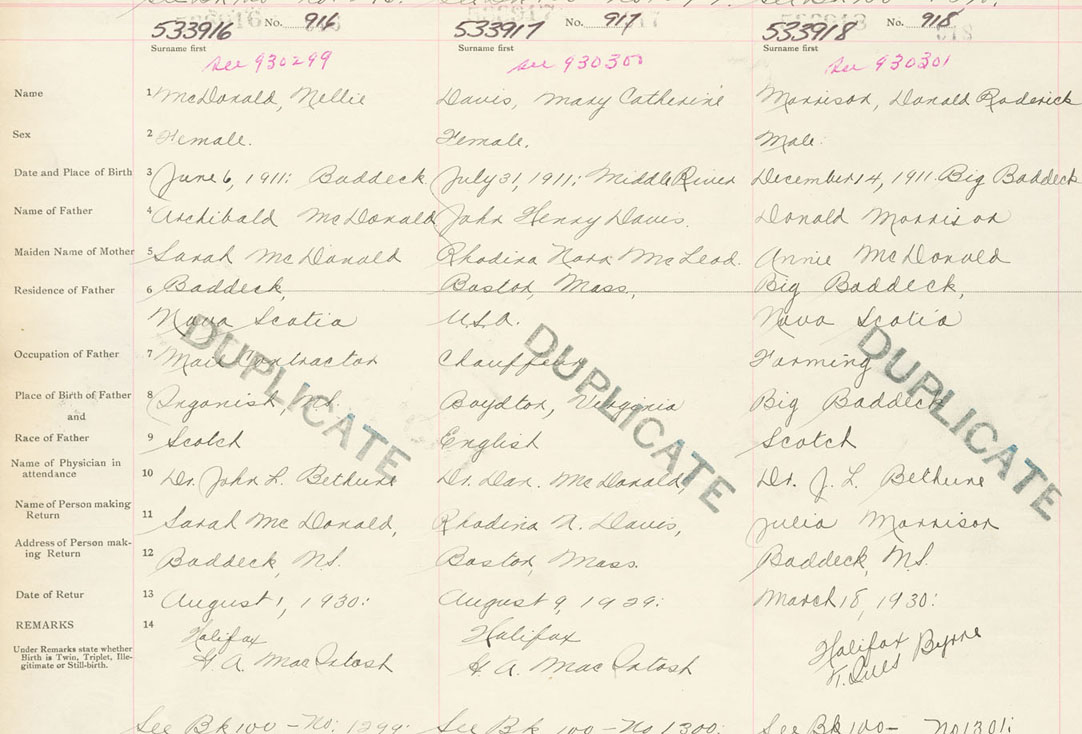 533916 No. 916 533917 No. 917 533918 No. 918
Surname first Surname first Surname first
See 930299 See 930300 See 930301
Name 1 McDonald, Nellie Davis, Mary Catherine Morrison, Donald Roderick
Sex 2 Female. Female. Male.
Date and Place of Birth 3 June 6, 1911: Baddeck July 31, 1911: Middle River December 14, 1911. Big Baddeck
Name of Father 4 Archibald McDonald John Henry Davis. Donald Morrison
Maiden Name of Mother 5 Sarah McDonald Rhodina Nora McLeod. Annie McDonald
Residence of Father 6 Baddeck, Boston, Mass, Big Baddeck,
Nova Scotia U.S.A. Nova Scotia
DUPLICATE DUPLICATE DUPLICATE
Occupation of Father 7 Mail Contractor Chauffeur Farming
Place of Birth of Father 8 Ingonish, N.S., Boydton, Virginia Big Baddeck
and
Race of Father 9 Scotch English Scotch
Name of Physician in
attendance 10 Dr. John L. Bethune Dr. Dan. McDonald, Dr. J. L. Bethune
Name of Person making
Return 11 Sarah McDonald, Rhodina N. Davis, Julia Morrison
Address of Person mak-
ing Return 12 Baddeck, N.S. Boston, Mass. Baddeck, N.S.
Date of Retur 13 August 1, 1930: August 9, 1929: March 18, 1930:
REMARKS 14 Halifax Halifax Halifax
Under Remarks state whether
Birth is Twin, Triplet, Ille-
gitimate or Still-birth.
H. A. MacIntosh H. A. MacIntosh Byrne
See Bk 100 - No: 1299: See Bk 100 - No 1300: See Bk 100 - No 1301: